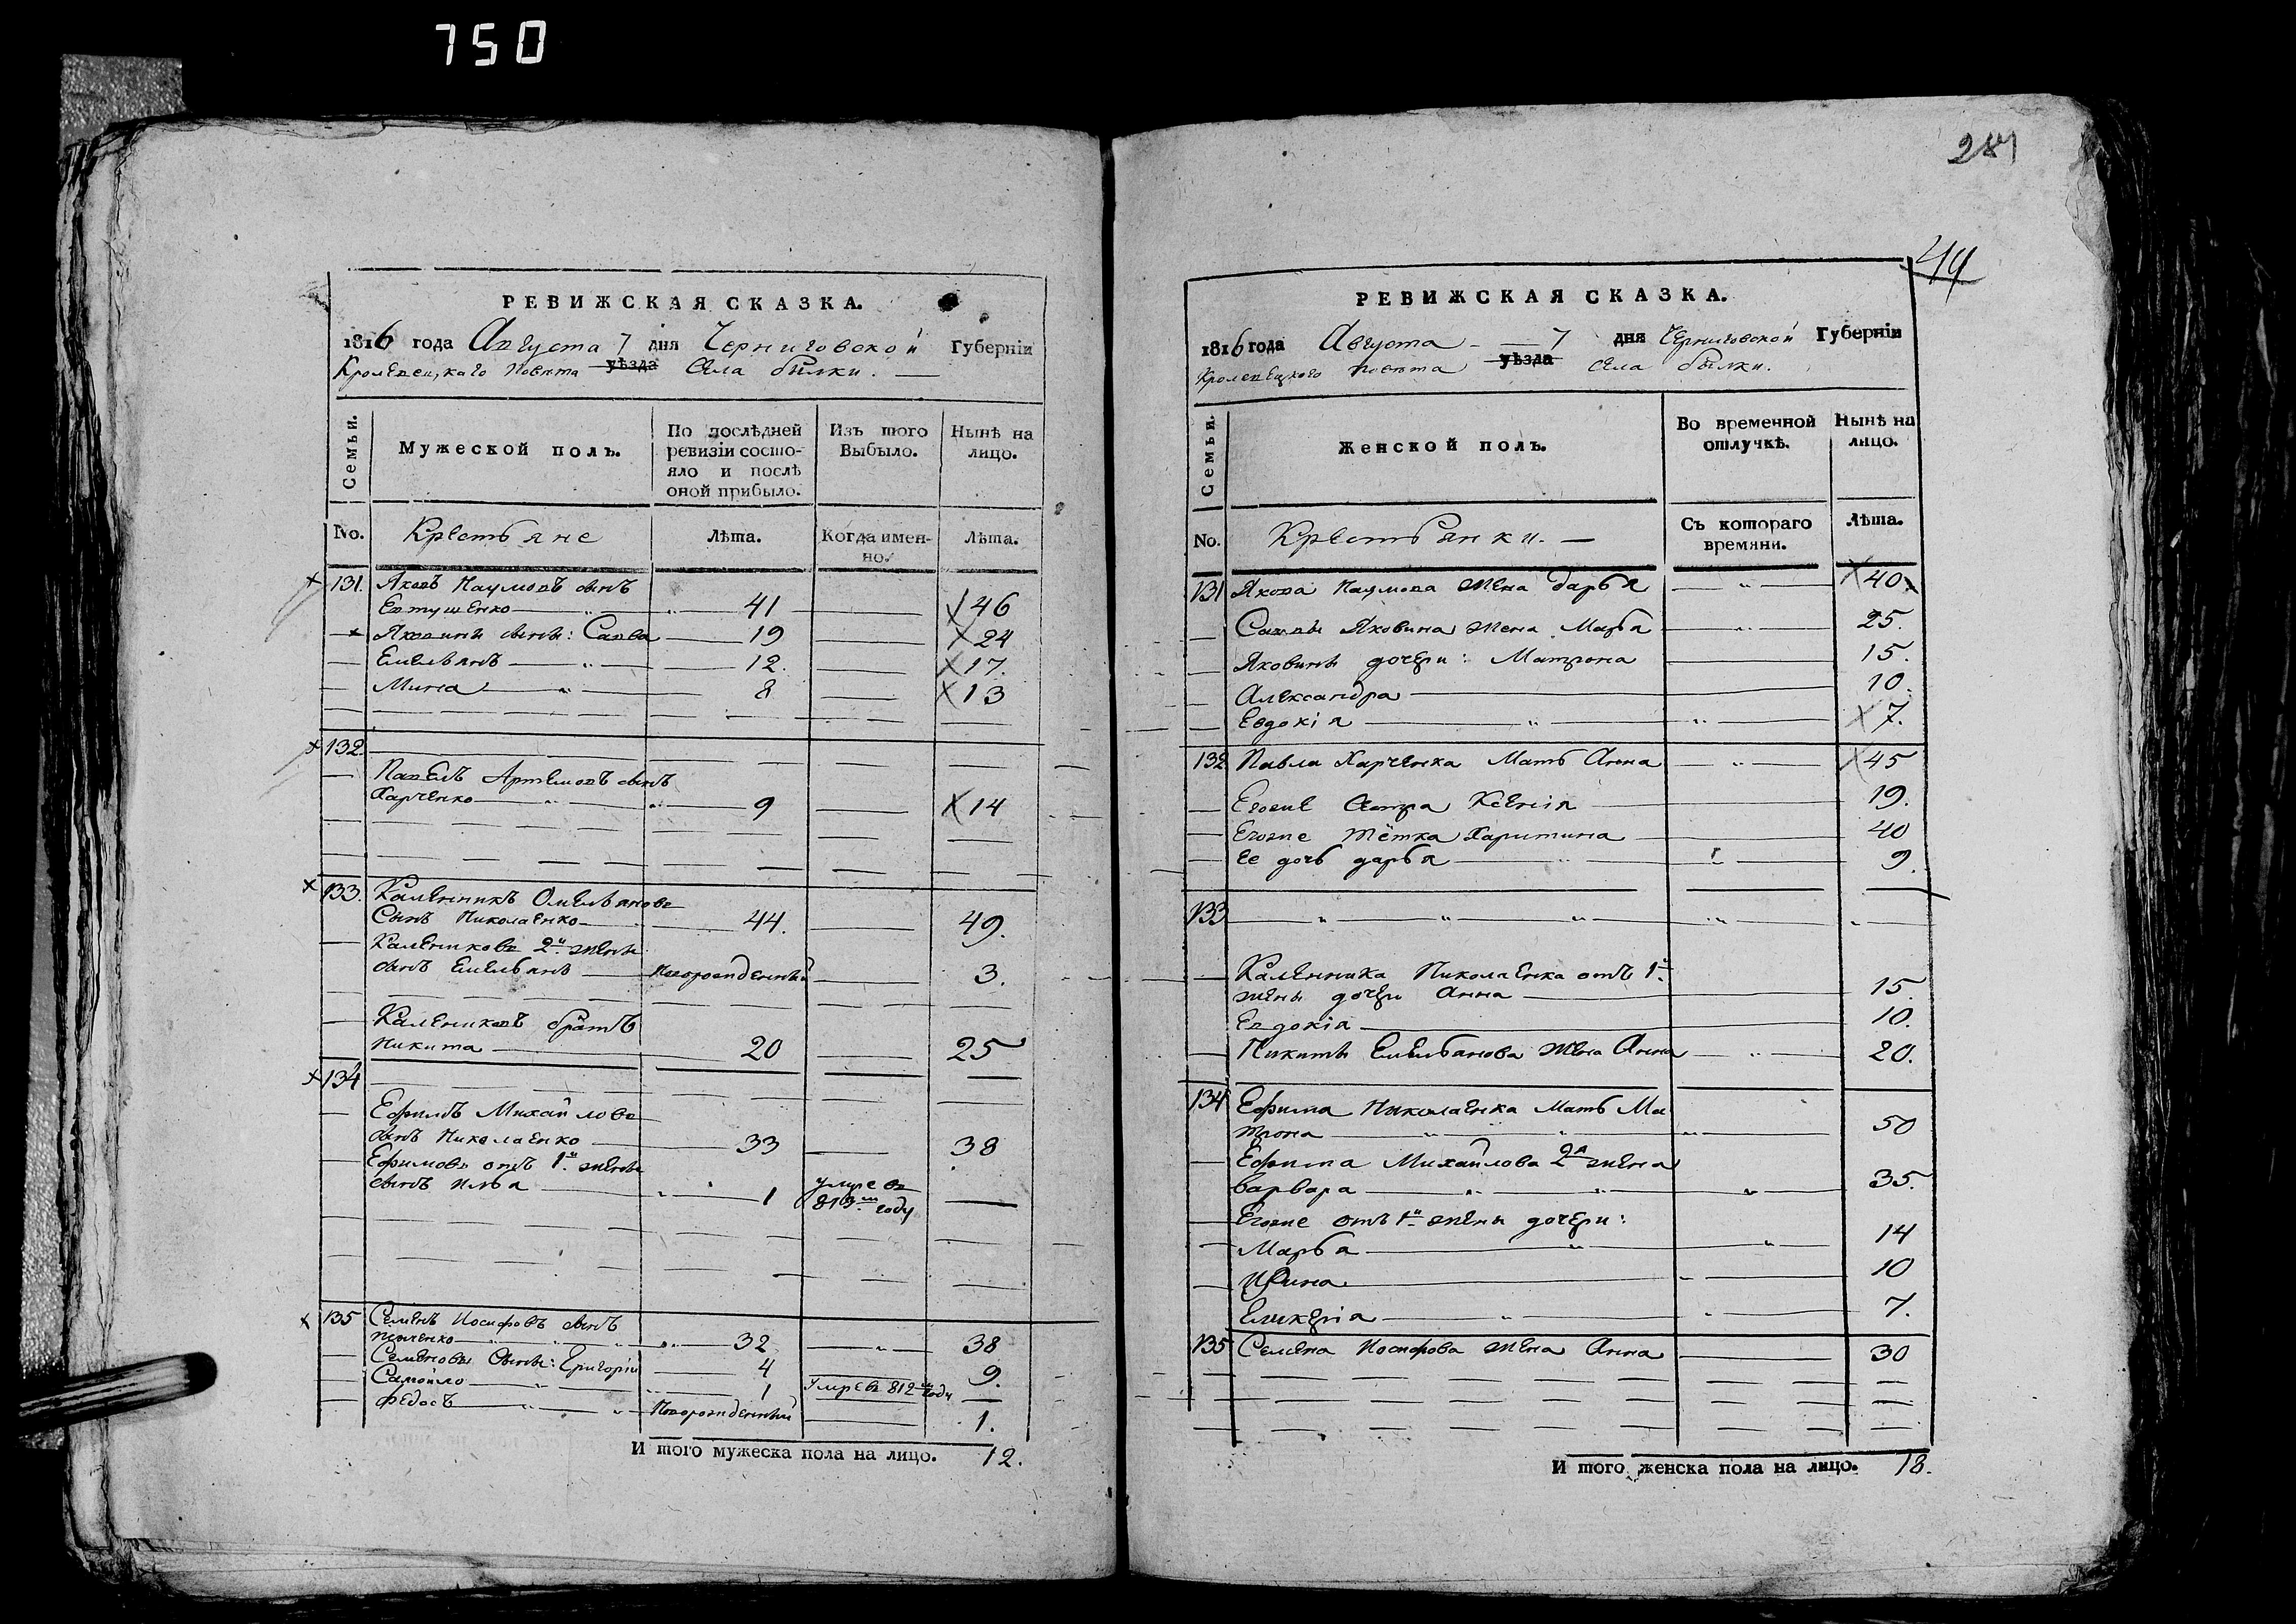 750
РЕВИЖСКАЯ СКАЗКА.
1816 года Августа 7 дня Черниговской Губерніи
Кролевецкаго Повѣта уѣзда Села билки.
Семьи.
Мужеской полъ.
По послѣдней ревизіи состо-
яло и послѣ
оной прибыло.
Изъ того
Выбыло.
Нынѣ на
лицо.
No. Крестьяне Лѣта. Когда имен-
но. Лѣта.
131. Яковъ Наумовъ сынъ
Евтушенко 41 46
Яковины сыны: Савва 19 24
Емельянъ 12. 17.
Мина 8 13
132.
Павелъ Артемовъ сынъ
Харченко 9 14
133. Каленникъ Омельяновъ
Сынъ Николаенко 44. 49.
Калениковъ 2й жены
сынъ Емельянъ Новорожденный 3.
Калениковъ братъ
Никита 20 25
134
Ефимъ Михайловъ
сынъ Николаенко 33 38
Ефимовъ отъ 1й жены
сынъ Илья 1 умре въ
813м году
135 Семенъ Иосифовъ сынъ
32 38
Семеновы Сыны: Григорій 4 9.
Самойло 1 Умре въ 812м году
Федосъ Новорожденный 1.
И того мужеска пола на лицо. 12.
281
44
РЕВИЖСКАЯ СКАЗКА.
1816 года Августа 7 дня Черниговской Губерніи
Кролевецкого повѣта уѣзда села билки.
Семьи.
Женской полъ.
Во временной
отлучкѣ.
Нынѣ на
лицо.
No. Крестьянки. Съ котораго
времяни. Лѣта.
131 Якова Наумова жена дарья 40
Саввы Яковина жена Марья 25.
Яковины дочери: Матрона 15.
Александра 10.
Евдокія 7.
132 Павла Харченка Мать Анна 45
Егоже Сестра Ксенія 19.
Егоже тётка Харитина 40
Ее дочь дарья 9.
133
Каленника Николаенка отъ 1й
жены дочери Анна 15.
Евдокія 10.
Никиты Емельянова жена Анна 20.
134 Ефима Николаенка Мать Ма
трона 50
Ефима Михайлова 2я жена
варвара 35.
Егоже отъ 1й жены дочери:
Марья 14
Ирина 10
Гликерія 7.
135 Семена Иосифова жена Анна 30
И того женска пола на лицо. 18.